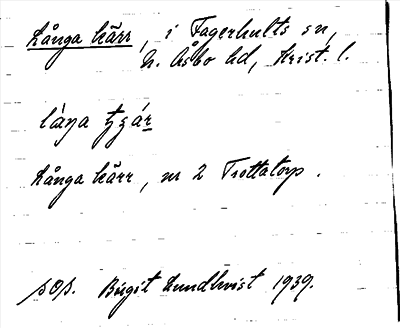 Långa kärr, i Fagerhults sn,
N. Åsbo hd, Krist. l.
Långa kärr, nr 2 Trottatorp.
pop. Birgit Lundkvist 1939.